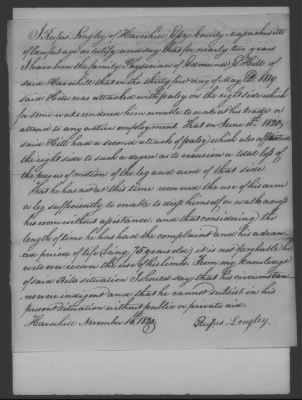 I Rufus Longley of Haverhill Essex County Massachusetts
of lawful age do testify and say that for nearly ten years
I have been the family Physician of Samuel Hills of
said Haverhill that on the thirty first day of May AD 1819
said Hills was attacked with palsy on the right side which
for some weeks rendered him unable to work at his trade or
attend to any active employment. That on June 11th 1820
said Hill had a second attack of palsy which also affected
the right side to such a degree as to occasion a total loss of
the power of motion of the leg and arm of that side
That he has not at this time recovered the use of his arm
or leg sufficiently to enable to dress himself or walk across
his room without assistance. and that considering the
length of time he has had the complaint and his advan
ced period of life (being 75 years old) it is not probable he
will ever recover the use of his limbs. From my knowledge
of said Hills situation I should say that his circumstan
ces were indigent and that he cannot subsist in his
present situation without public or private aid.
Haverhill November 15th 1820 Rufus Longley.